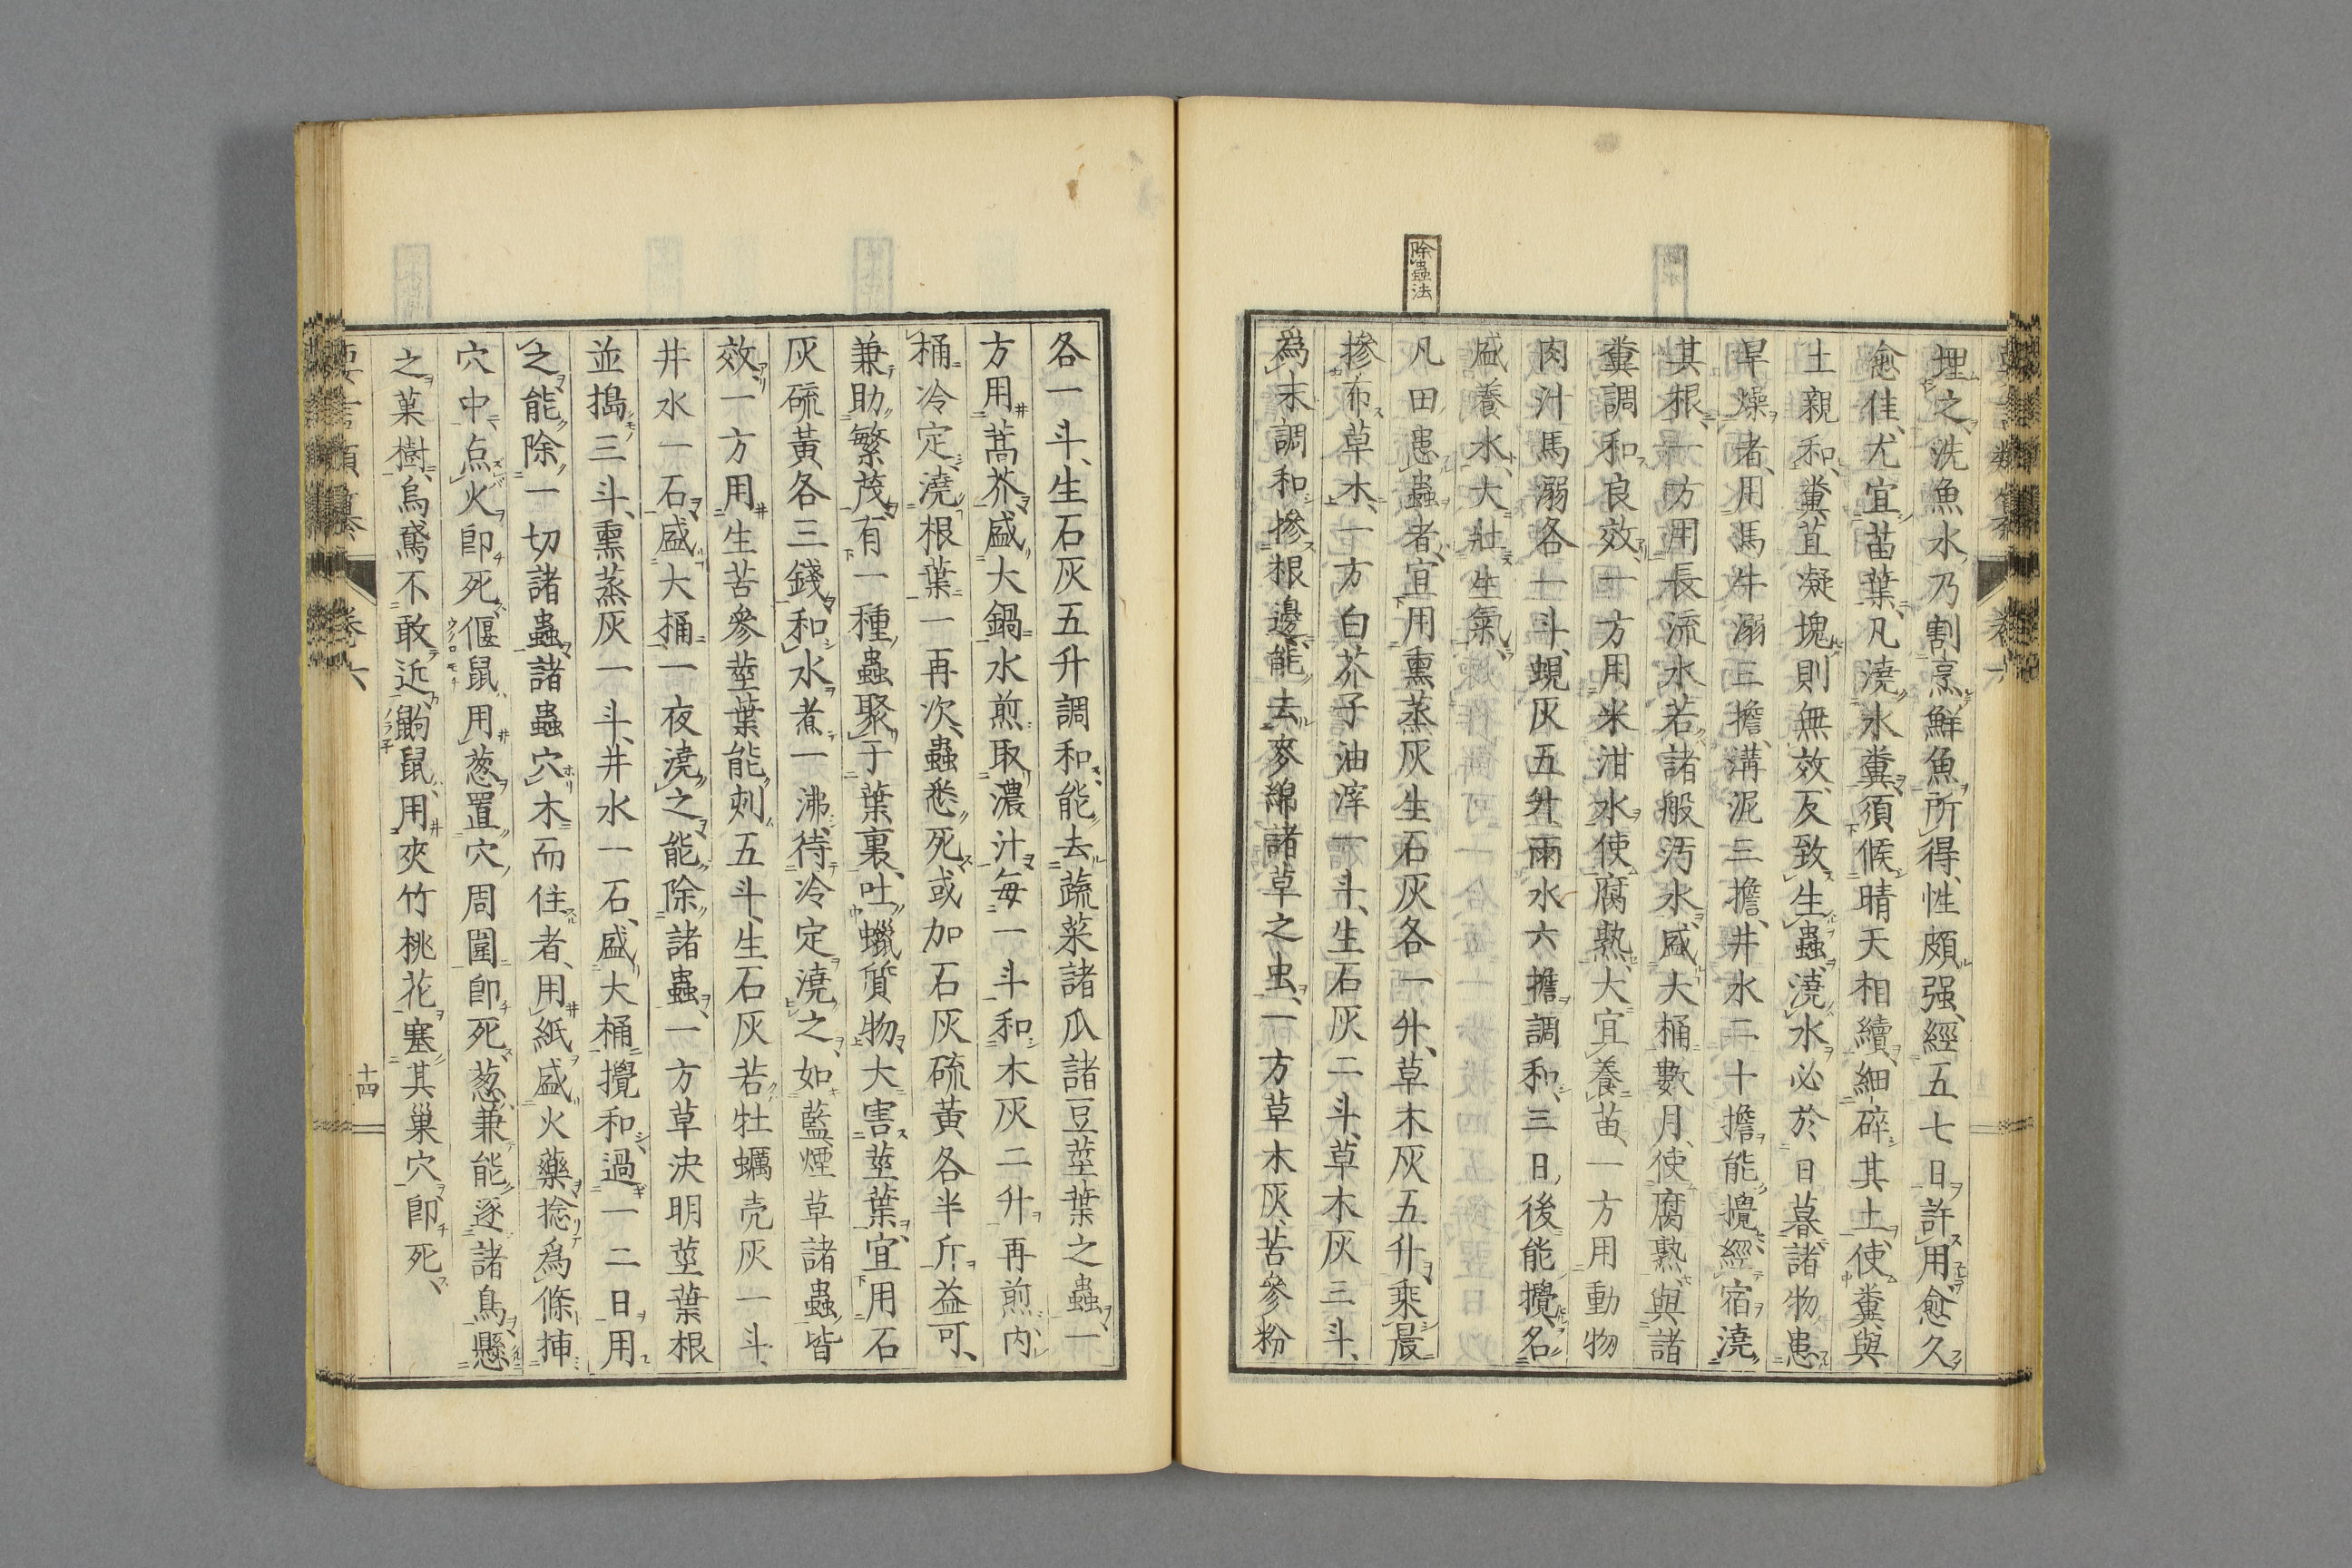 除蟲法
埋之洗魚水乃割烹鮮魚所得、性頗强、經五七日許用、愈久
愈佳、尤宜苗葉、凡澆水糞須候晴天相續、細碎其土、使糞與
土親和、糞苴凝塊則無效、反致生蟲、澆水必於日暮、諸物患
旱燥者、用馬牛溺三擔、溝泥三擔、井水二十擔能攪、經宿澆
其根、一方用長流水若諸般汚水、盛大桶數月、使腐熟、與諸
糞調和良效、一方用米泔水使腐熟、大宜養苗、一方用動物
肉汁馬溺各一斗、蜆灰五升、雨水六擔調和、三日後能攪、名
盛養水、大壯生氣
凡田患蟲者、宜用熏蒸灰生石灰各一升、草木灰五升、乘晨
摻布草木、一方白芥子油滓一斗、生石灰二斗、草木灰三斗、
爲末調和摻根邊、能去麥綿諸草之虫、一方草木灰、苦參粉
各一斗、生石灰五升調和、能去蔬菜諸瓜諸豆莖葉之蟲、一
方用蒿芥、盛大鍋水煎取濃汁、每一斗和木灰二升再煎、內
桶冷定、澆根葉一再次、蟲悉死、或加石灰硫黃各半斤益可、
兼助繁茂、有一種蟲聚于葉裏、吐蠟質物、大害莖葉、宜用石
灰硫黃各三錢、和水煮一沸、待冷定澆之、如藍煙草諸蟲皆
效、一方用生苦參莖葉能刺五斗、生石灰若牡蠣壳灰一斗、
井水一石、盛大桶一夜澆之、能除諸蟲、一方草決明莖葉根
並搗三斗、熏蒸灰一斗、井水一石、盛大桶攪和、過一二日用
之、能除一切諸蟲、諸蟲穴木而住者、用紙盛火藥捻爲條挿
穴中、点火卽死、偃鼠用葱置穴周圍卽死、葱兼能逐諸鳥、懸
之菓樹、烏鵞不敢近、鼩鼠用夾竹桃花塞其巢穴卽死、
卷六
十四